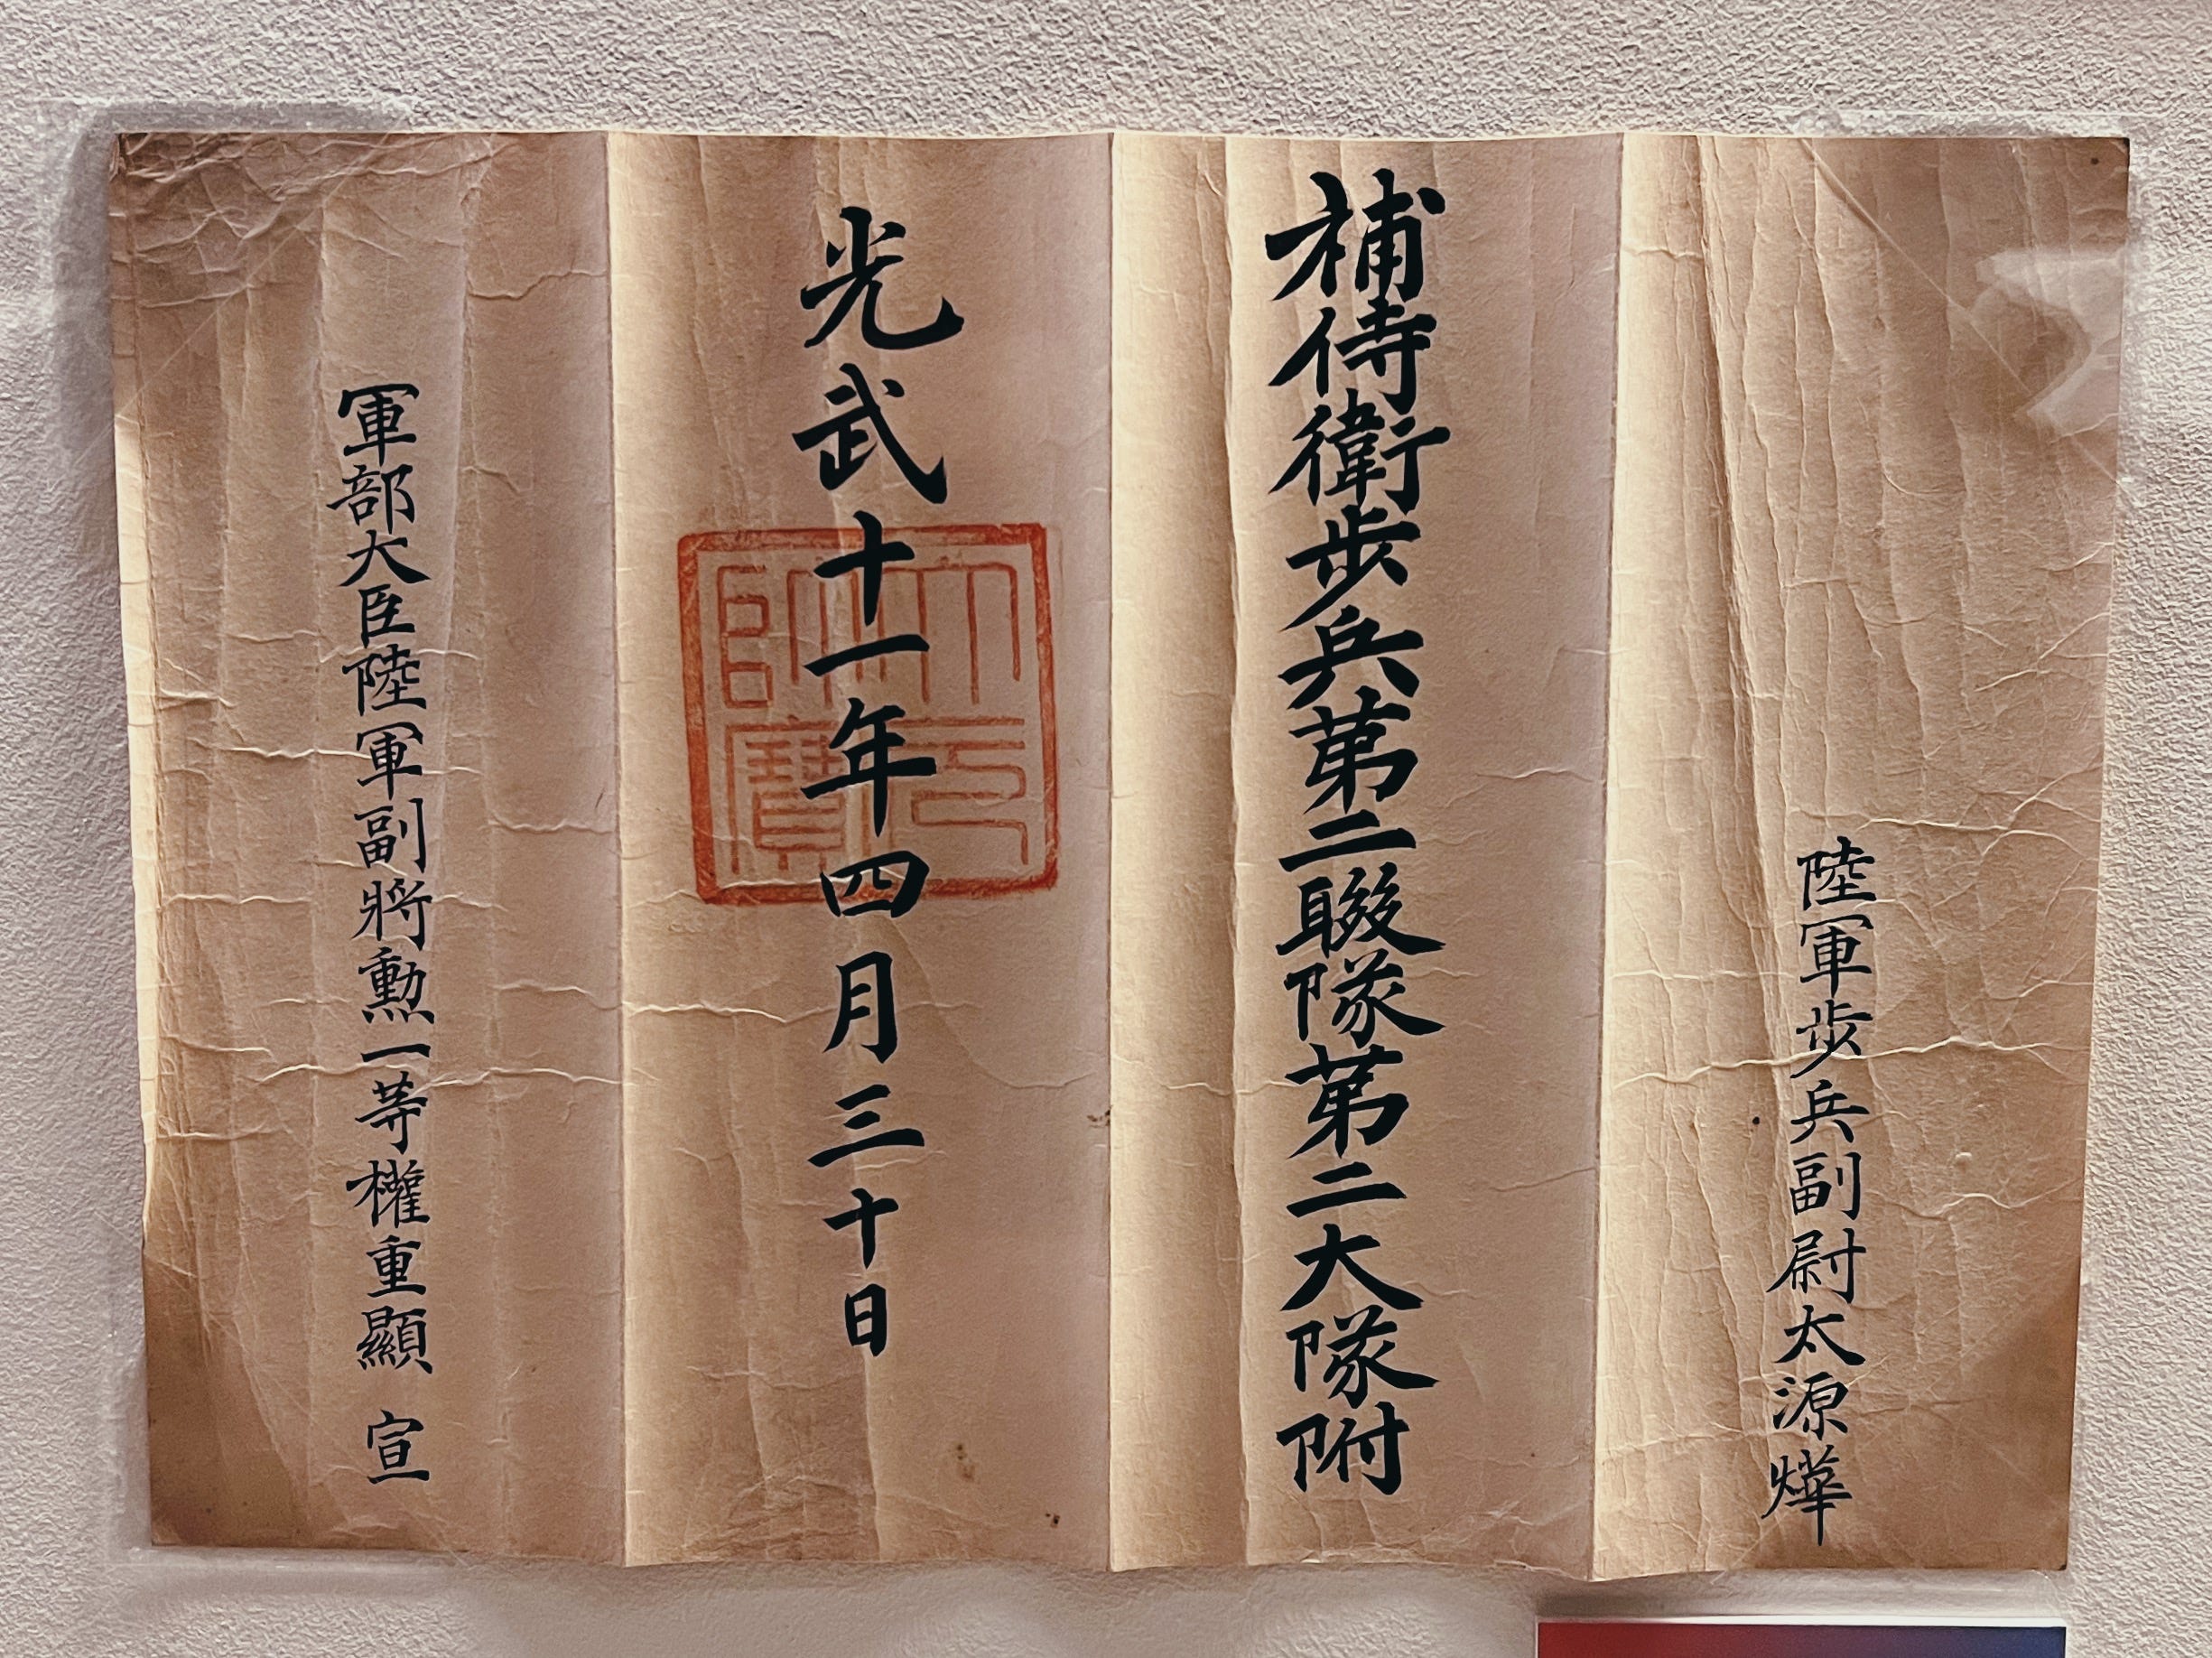 陸軍步兵副尉太源燁
補侍衛步兵苐二聯隊苐二大隊附
光武十一年四月三十日
大元帥寶
軍部大臣陸軍副將勳一等權重顯 宣